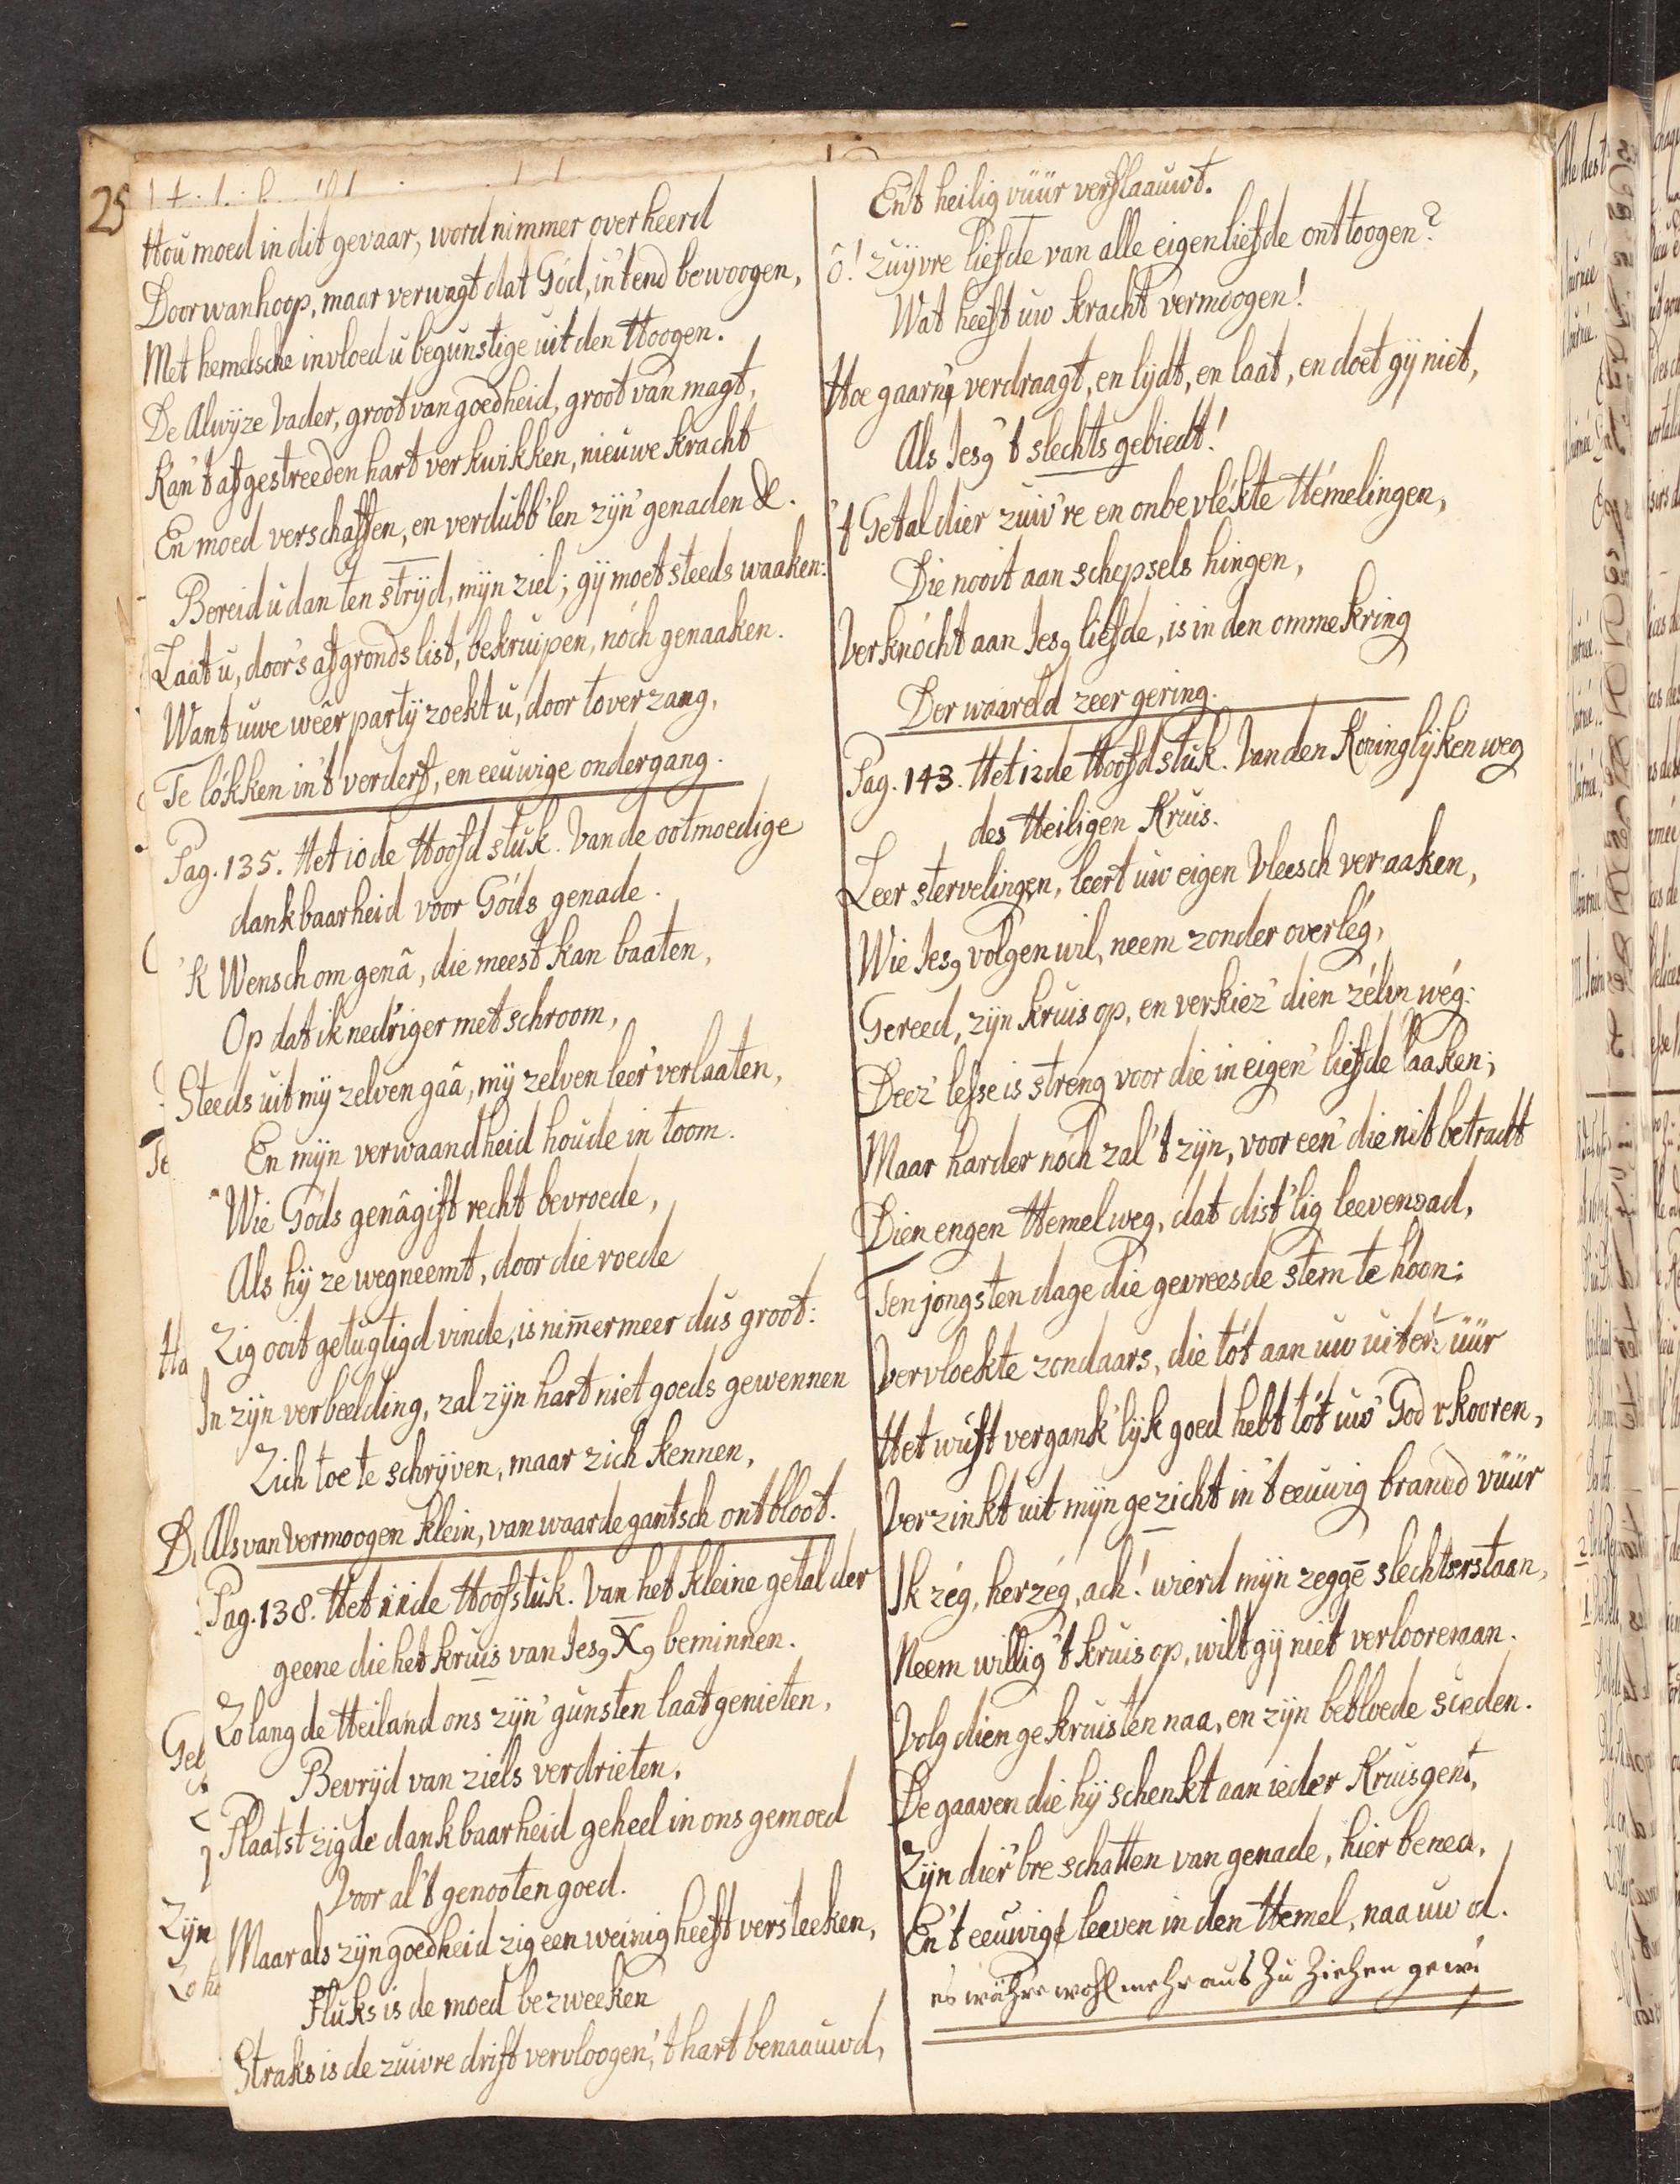 25
Hou moed in dit gevaar, word nimmer overheerd
Door wanhoop, maar verwagt dat Gód, in 't end bewoogen,
Met hemelsche invloed u begunstige uit den Hoogen.
De Alwijze Vader, groot van goedheid, groot van magt,
Kan 't afgestreeden hart verkwikken, nieuwe kracht
En moed verschaffen, en verdubb'len zijn' genaden &.
Bereid u dan ten strijd, mijn ziel; gij moet steeds waaken:
Laat u, door 's afgronds list, bekruipen, nóch genaaken.
Want uwe wêerpartij zoekt u, door toverzang,
Te lókken in 't verderf, en eeuwige ondergang.
Pag. 135. Het 10de Hoofdstuk. Van de ootmoedige
dankbaarheid voor Góds genade.
'K Wensch om genâ, die meest kan baaten,
Op dat ik nedriger met schroom,
Steeds uit mij zelven gaâ, mij zelven leer' verlaaten,
En mijn verwaandheid houde in toom.
Wie Góds genâgift recht bevroede,
Als hij ze wegneemt, door die roede
Zig ooit getugtigd vinde, is nim̄ermeer dus groot:
In zijn verbeelding, zal zijn hart niet goeds gewennen
Zich toe te schrijven, maar zich kennen,
Als van vermoogen klein, van waarde gantsch ontbloot.
Pag. 138. Het 11de Hoofstuk. Van het kleine getal der
geene die het kruis van Jesꝯ Xꝯ beminnen.
Zo lang de Heiland ons zijn' gunsten laat genieten,
Bevrijd van ziels verdrieten,
Plaatst zig de dankbaarheid geheel in ons gemoed
Voor al 't genooten goed.
Maar als zijn goedheid zig een weinig heeft versteeken,
Fluks is de moed bezweeken
Straks is de zuivre drift vervloogen, 't hart benaauwd,
En 't heilig vüür verflaauwt.
ô! zuijvre liefde van alle eigenliefde onttoogen?
Wat heeft uw kracht vermoogen!
Hoe gaarn verdraagt, en lijdt, en laat, en doet gij niet,
Als Jesꝯ 't slechts gebiedt!
't Getal dier zuiv're en onbevlékte Hémelingen,
Die nooit aan schepsels hingen,
Verknócht aan Jesꝯ liefde, is in den ommekring
Der waareld zeer gering.
Pag. 143. Het 12de Hoofdstuk. Van den Koninglijken weg
des Heiligen Kruis.
Leer stervelingen, leert uw eigen Vleesch verzaaken,
Wie Jesꝯ volgen wil, neem zonder overlég,
Gereed, zijn kruis op, en verkiez' dien zélvn wég:
Deez' lesse is streng voor die in eigen' liefde laaken;
Maar harder nóch zal 't zijn, voor een' die nit betracht
Dien engen Hemelweg, dat dist'lig leevenspad,
Ten jongsten dage die gevreesde stem te hóon:
Vervloekte zondaars, die tót aan uw uiterst üür
Het wuft vergank'lijk goed hebt tót uw' God vkooren,
Verzinkt uit mijn gezicht in 't eeuwig brannd vüür
Ik zég, herzég, ach! wierd mijn zeggē slechts verstaan,
Neem willig 't kruis op, wilt gij niet verlooren gaan.
Volg dien gekruisten naa, en zijn bebloede scheden.
De gaaven die hij schenkt aan ieder Kruisgent,
Zijn dier'bre schatten van genade, hier benea,
En 't eeuwige leeven in den Hemel, naa uw d.
es währe wohl mehr aus zu Ziehen gew